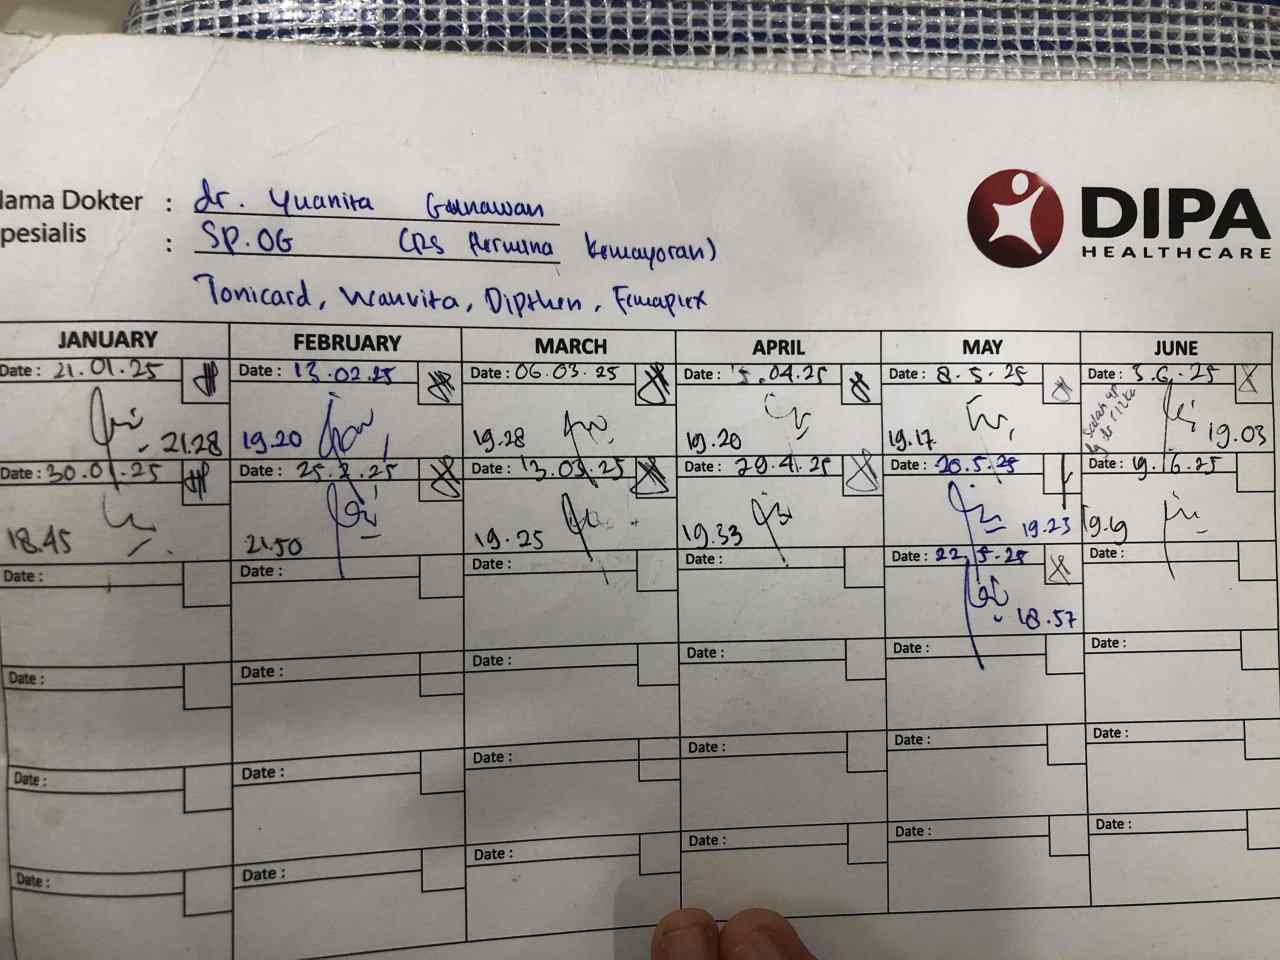 Nama Dokter : dr. Yuanita Gunawan
Spesialis : SP.OG (RS Hermina Kemayoran)
Tonicard, Wanvita, Dipthen,
DIPA
HEALTHCARE
JANUARY FEBRUARY MARCH APRIL MAY JUNE
Date : 21.01.25 Date : 13.02.25 Date : 06.03.25 Date : 5.04.25 Date : 8.5.25 Date : 3.6.25
21.28 19.20 19.28 19.20 19.17 19.03
Date : 30.01.25 Date : 25.2.25 Date : 13.03.25 Date : 29.4.25 Date : 20.5.25 Date : 19.6.25
18.45 21.50 19.25 19.33 19.23 19.19
Date : Date : Date : Date : Date : 22.5.25 Date :
18.57
Date : Date : Date : Date : Date : Date :
Date : Date : Date : Date : Date : Date :
Date : Date : Date : Date : Date : Date :